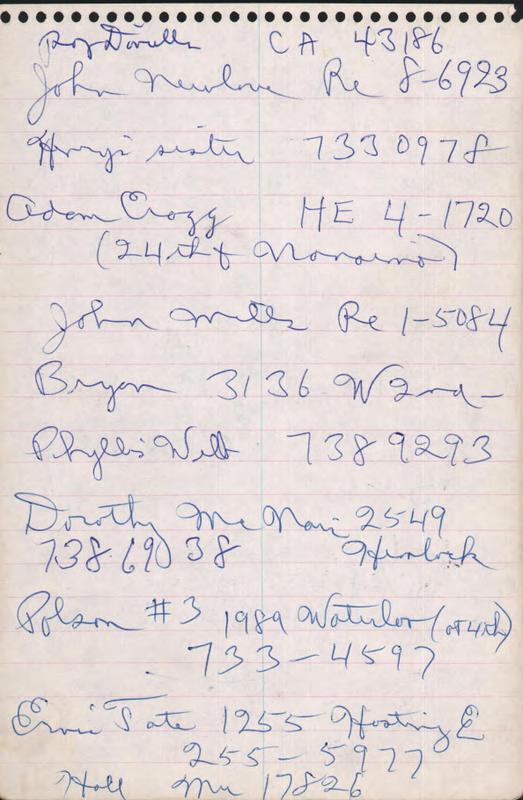 Roy CA 43186
John Newlove Re 8-6923
Harry's sister 733 0978
Adam Crogg HE 4-1720
(24th & Nanaimo)
John Mills Re 1-5084
Bryan 3136 W 2nd-
Phyllis Webb 738 9293
Dorothy McNair 2549
738 69 38 Hemlock
Polson #3 1989 Waterloo (at 4th)
733-4597
Ernie Tate 1255 Hasting E
255-5977
Hall Mu 17826